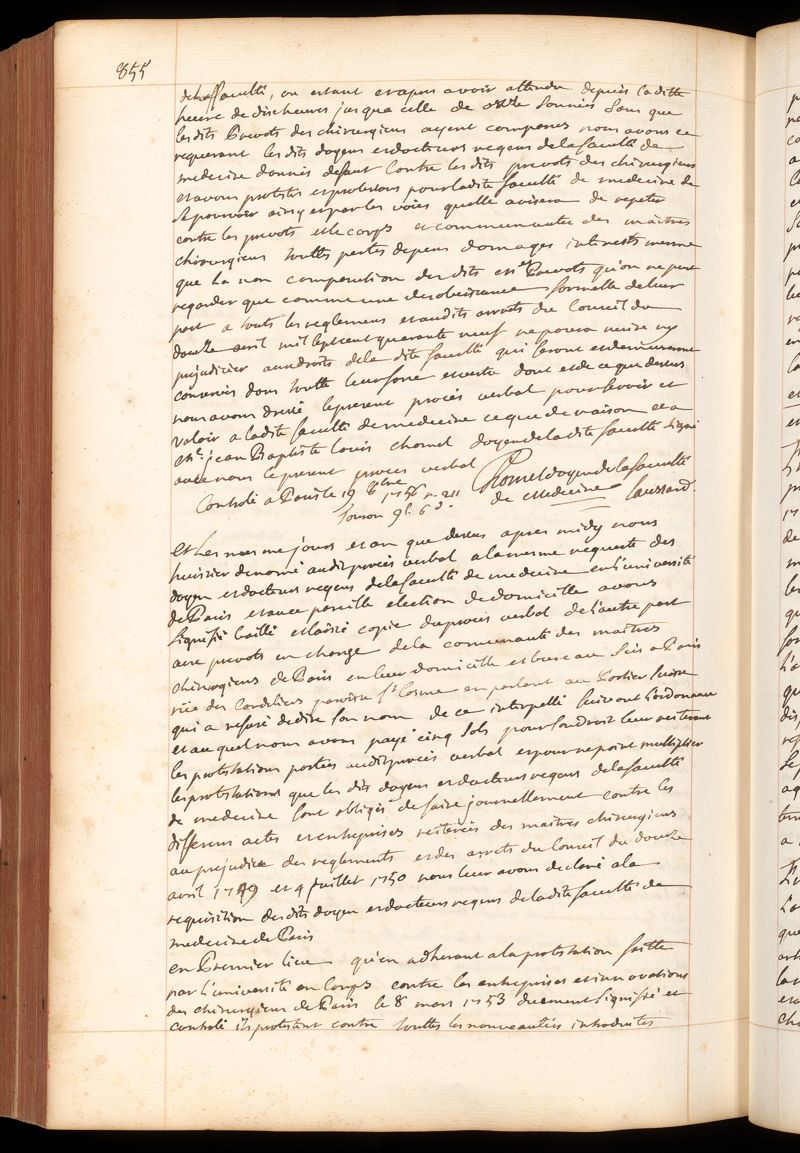 855
de la ffaculté, ou estant et apres avoir attendu depuis laditte
heure de dix heures jusqua celle de onze sonnées sans que
lesdits Prevots des chirurgiens ayent comparus nous avons ce
requerant lesdits doyens et docteurs regens de la faculté de
medecine donnés defaut contre lesdits prevots des chirurgiens
et avons protestes et protestons pour ladite faculté de medecine de
se pourvoir ainsy et par les voies quelle avisera de repeter
contre les prevots et le corps et communauté des maitres
chirurgiens touttes pertes depens domages interests mesme
que la non comparution desdits srs Prevots qu'on ne peut
regarder que comme une desobeissance formelle de leur
part a touts les reglemens et audits arrests du Conseil du
douze avril mil sept cent quarante neuf ne poura nuire ny
prejudicier aux droits de la dite faculté qui seront et demeureront
conservés dans toutte leur force et vertu dont et de ce que dessus
nous avons dressé le present procés verbal pour servir et
valoir a ladite faculté de medecine ce que de raison et a
Me. jean Baptiste Louis Chomel doyen de la dite faculté signé
avec nous le present procés verbal Chomel doyen de la faculté
Controlé a Paris le 19 1756 de Medecine Caussard.
9s. 6d.
Et Les mesme jours et an que dessus apres midy nous
huissier denomé audit procés verbal a la mesme requeste des
doyen et docteurs regens de la faculté de medecine en l'université
de Paris et avec pareille election de domicille avons
signifié baillé et laissé copie du procés verbal de l'autre part
aux prevots en charge de la comunauté des maitres
chirurgiens de Paris en leur domicille et bureau sis a Paris
rüe des Cordeliers paroisse St Cosme en parlant au Portier suisse
qui a refusé de dire son nom de ce interpellé suivant l'ordonance
et auquel nous avons payé cinq sols pour leur reiterant
les protestations portées audit procés verbal et pour ne point multiplier
les protestations que les dits doyens et docteurs regens de la faculté
de medecine sont obligés de faire journellement contre les
differens actes et entreprises reiterées des maitres chirurgiens
au prejudice des reglements et des arrets du Conseil du douze
avril 1749 et 4 juillet 1750 nous leur avons declaré a la
requisition desdits doyen et docteurs regens de ladite faculté de
medecine de Paris
en Premier lieu qu'en adherant a la protestation faitte
par l'université en Corps contre les entreprises et innovations
des chirurgiens de Paris le 8 mars 1753 duement signifié et
controlé ils protestent contre touttes les nouveautées introduites